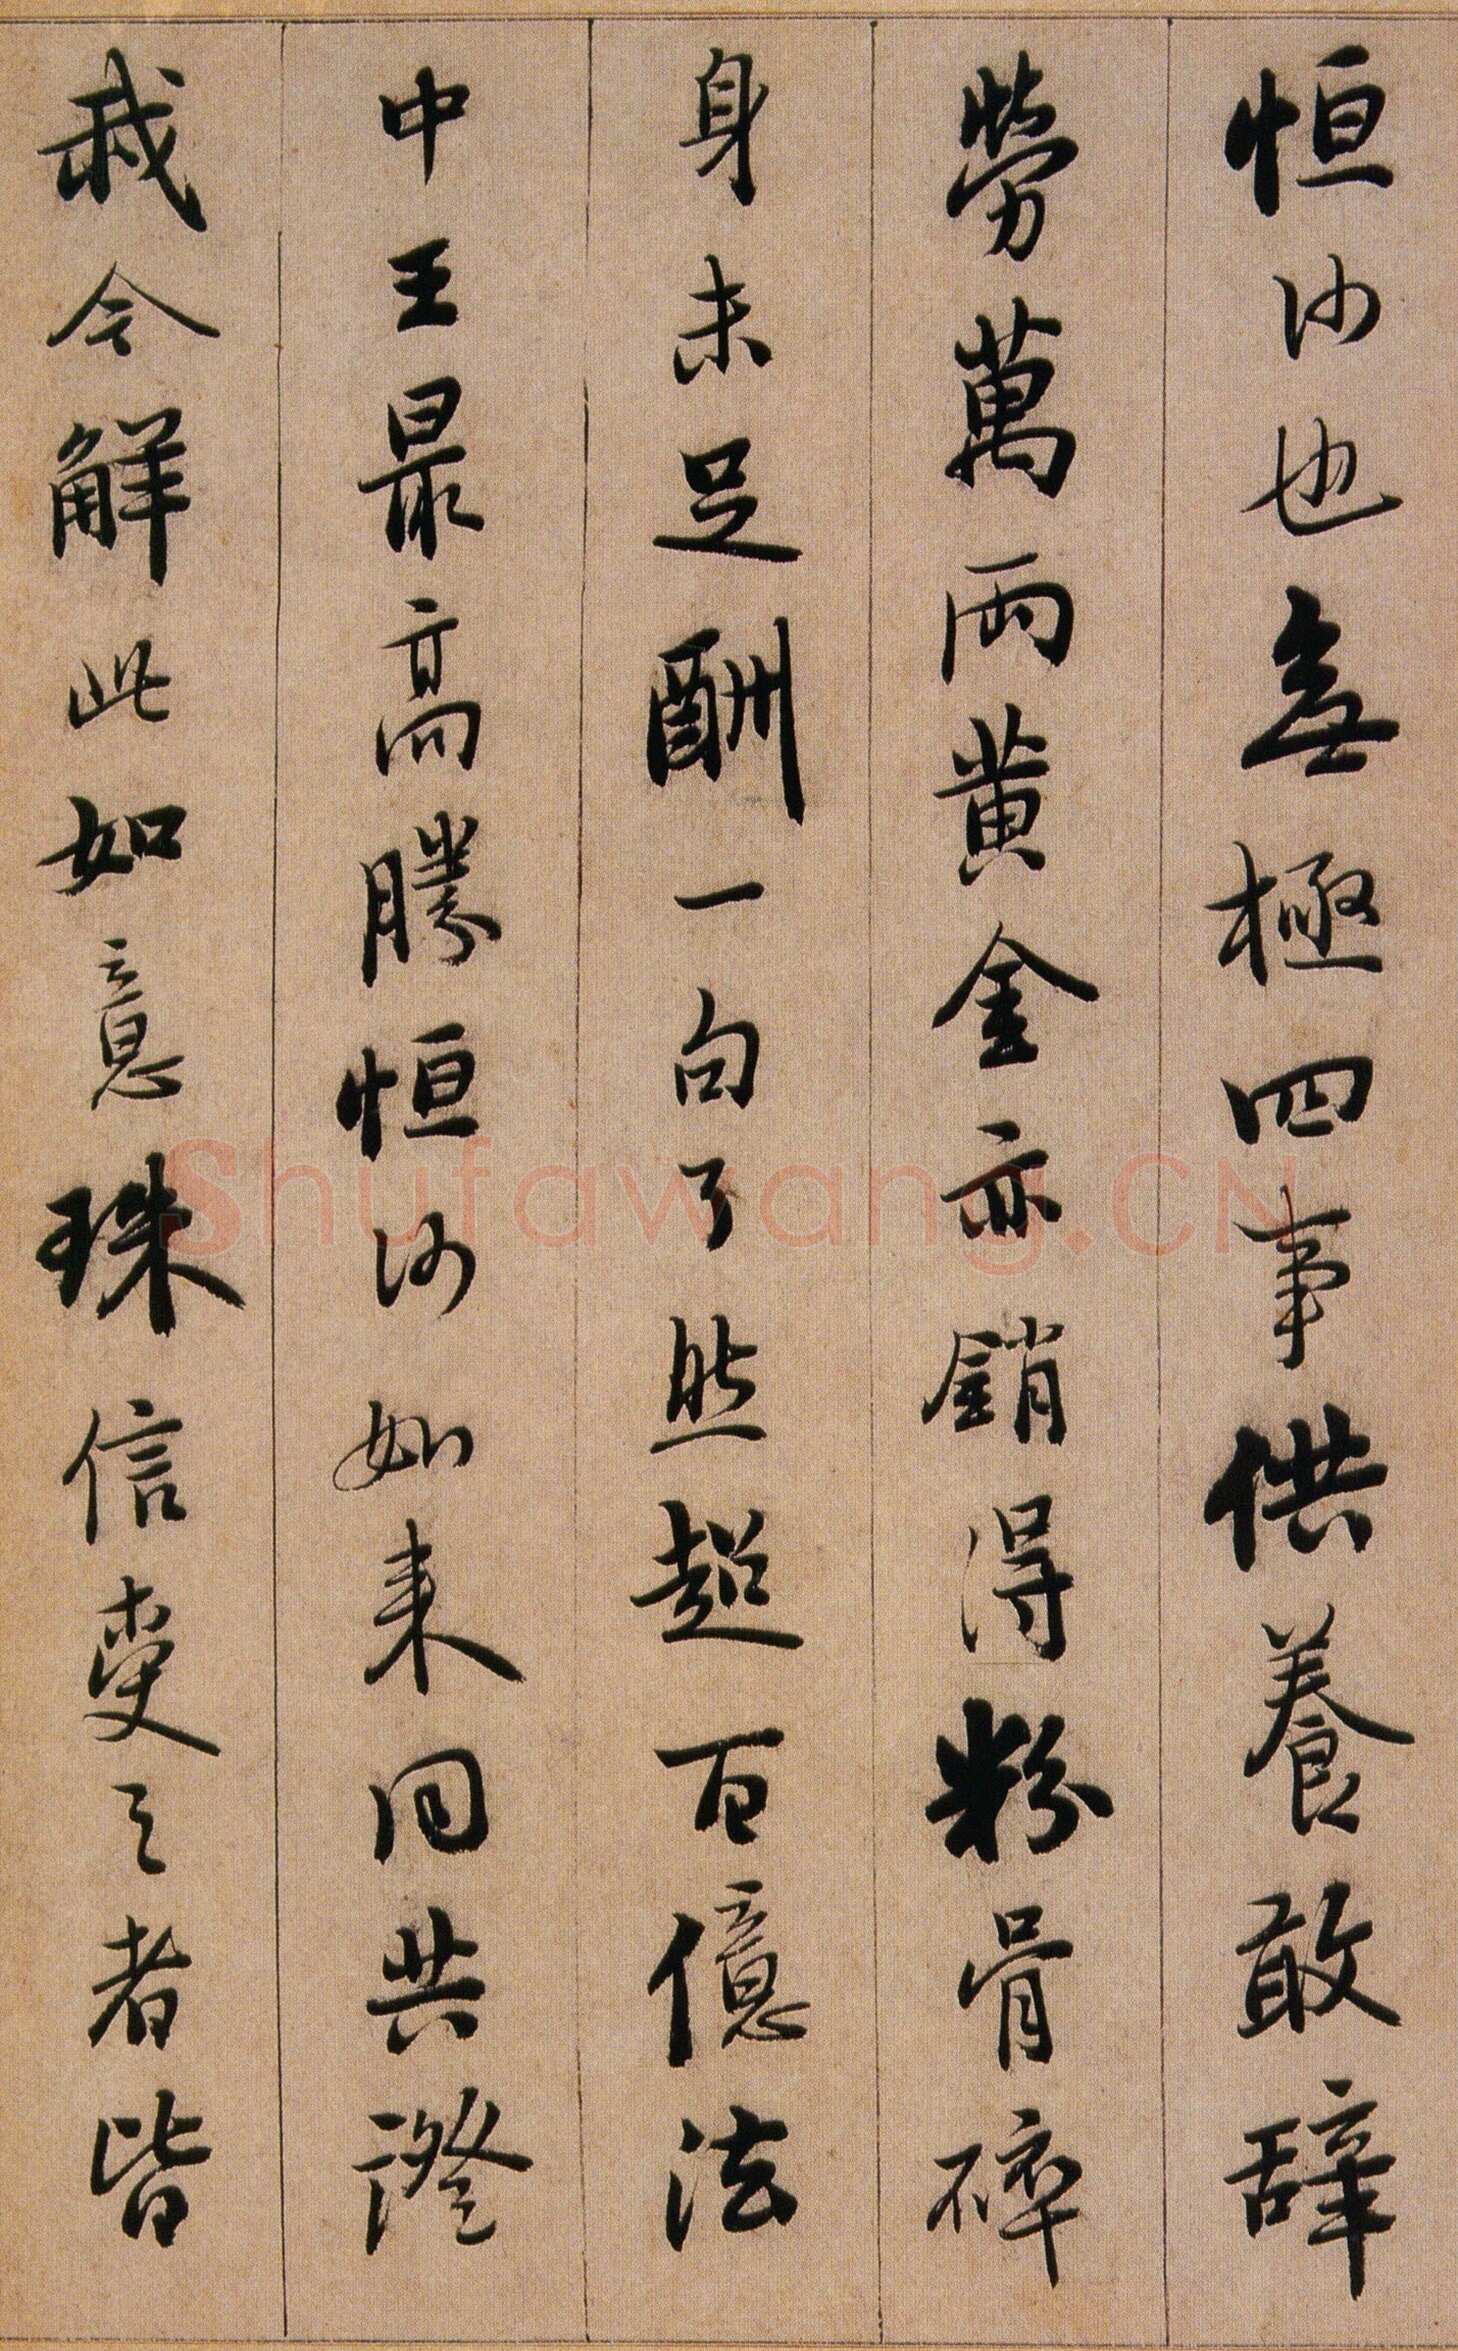 恒沙也無極四事供養敢辞
勞萬兩黄金亦銷得粉骨碎
身未足酬一句了然超百億法
中王最高勝恒沙如来同共證
我今解此如意珠信受之者皆
Shufawang.CN